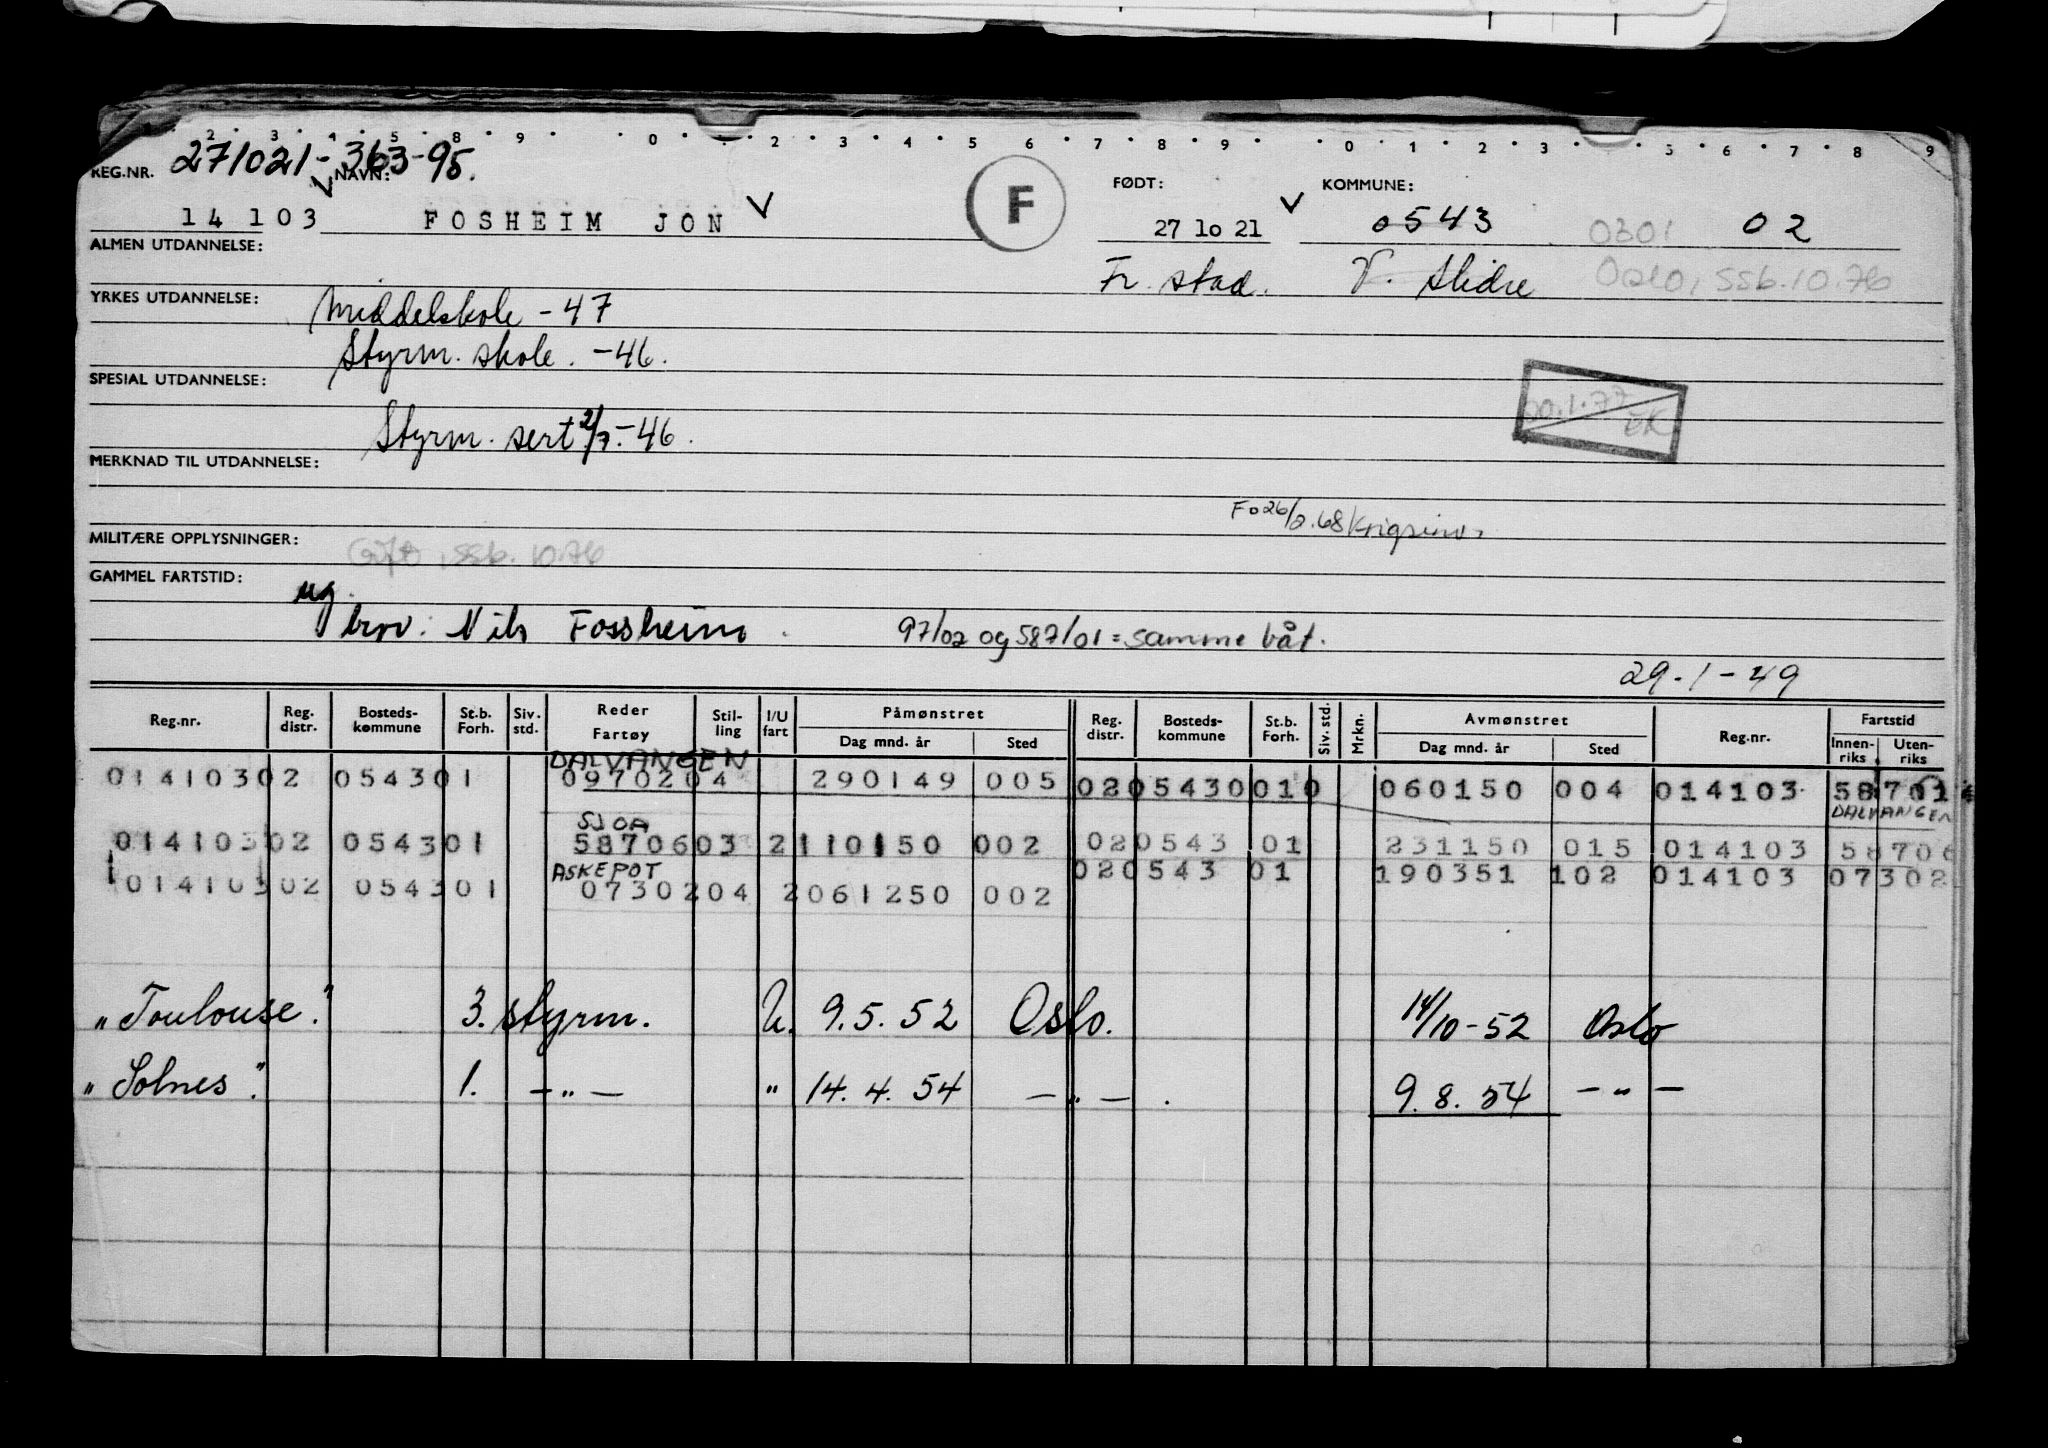 2 3 4 5 8 9 0 1 2 3 4 5 6 7 8 9 0 1 2 3 5 6 7 8 9
271021-363-95.
REG.NR. NAVN: FØDT: KOMMUNE:
14 103 FOSHEIM JON F 27 10 21 0543 0301 02
ALMEN UTDANNELSE: Fr. stad. V. Slidre Oslo, SSB.10.76
YRKES UTDANNELSE: Middelskole - 47
Styrm. skole. -46.
SPESIAL UTDANNELSE:
.1.77 EK
Styrm. sert 2/7.-46.
MERKNAD TIL UTDANNELSE:
Fo 26/2.68 Krigsinv.
MILITÆRE OPPLYSNINGER: Gift, SSB. 10.76
GAMMEL FARTSTID:
ug.
brov. Nils Fossheim. 97/02 og 587/01 = samme båt.
29.1-49
Reg.nr. Reg. distr. Bosteds-kommune St.b. Forh. Siv. std. Reder Fartøy Stil-ling I/U fart Påmønstret Dag mnd. år Sted Reg. distr. Bosteds-kommune St.b. Forh. Siv. std. Mrkn. Avmønstret Dag mnd. år Sted Reg.nr. Fartstid Innen-riks Uten-riks
DALVANGEN
01410302 054301 0970204 290149 005 0205430010 060150 004 014103 58701
DALVANGEN
SJOA
01410302 054301 5870603 2110150 002 020543 01 231150 015 014103 58706
ASKEPOT
01410302 054301 0730204 2061250 002 020543 01 190351 102 014103 07302
"Toulouse." 3. styrm. U. 9.5.52 Oslo. 14/10-52 Oslo
"Solnes". 1. -"- " 14.4.54 -"-. 9.8.54 -"-